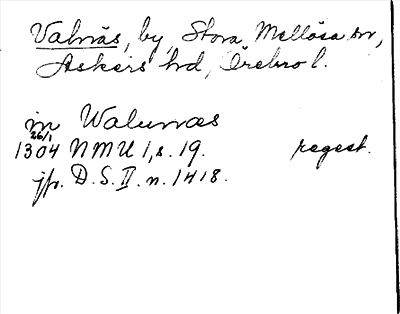 Valnäs, by, Stora Mellösa sn,
Askers hd, Örebro l.
in Walunæs
26/1
1304 NMU 1, s. 19. regest.
jfr. D.S. II. n. 1418.